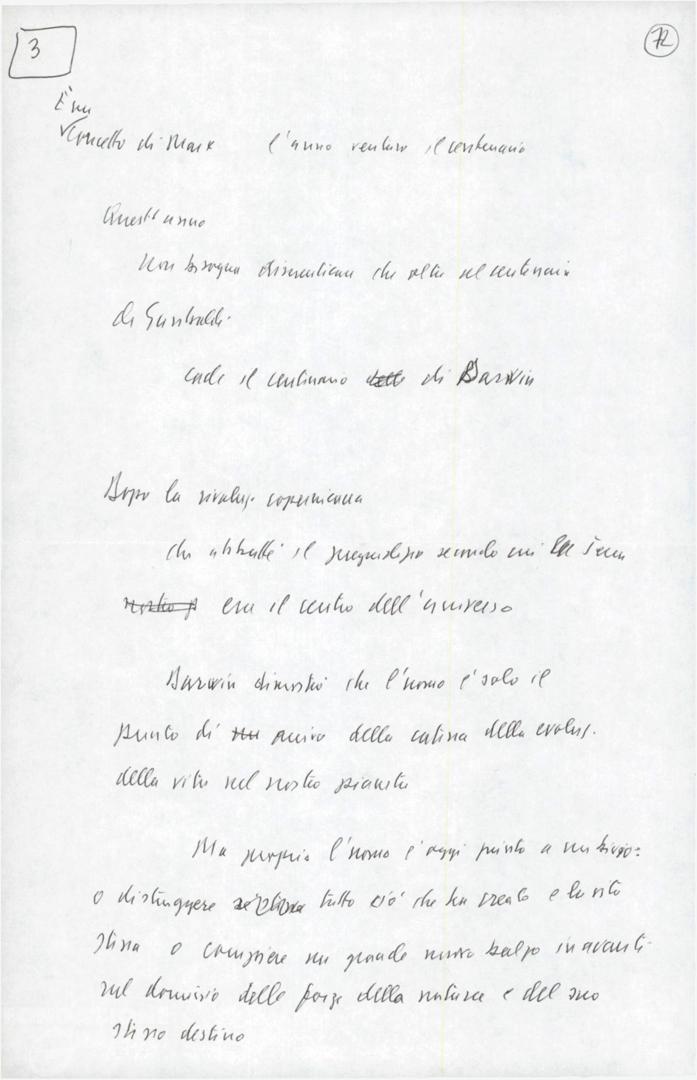 3
72
È un
Concetto di Marx l'anno venturo il centenario
Quest'anno
Non bisogna dimenticare che oltre al centenario
di Garibaldi
cade il centenario delle di Darwin
Dopo la rivoluz. copernicana
che abbatté il pregiudizio secondo cui la Terra
nostro p era il centro dell'universo
Darwin dimostrò che l'uomo è solo il
punto di un arrivo della catena della evoluz.
della vita sul nostro pianeta
Ma proprio l'uomo è oggi giunto a un bivio:
o distruggere tutto ciò che ha creato e la vita
stessa o compiere un grande nuovo balzo in avanti
sul dominio delle forze della natura e del suo
stesso destino